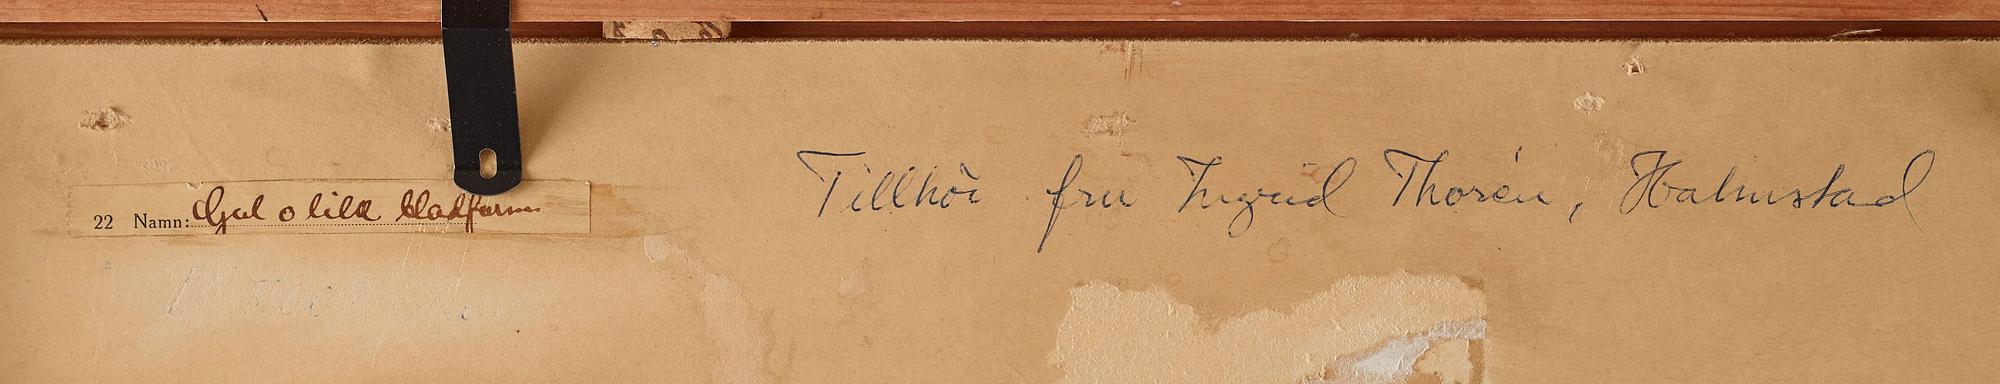 22 Namn: Gul o lila bladformer
Tillhör fru Ingrid Thorén, Halmstad